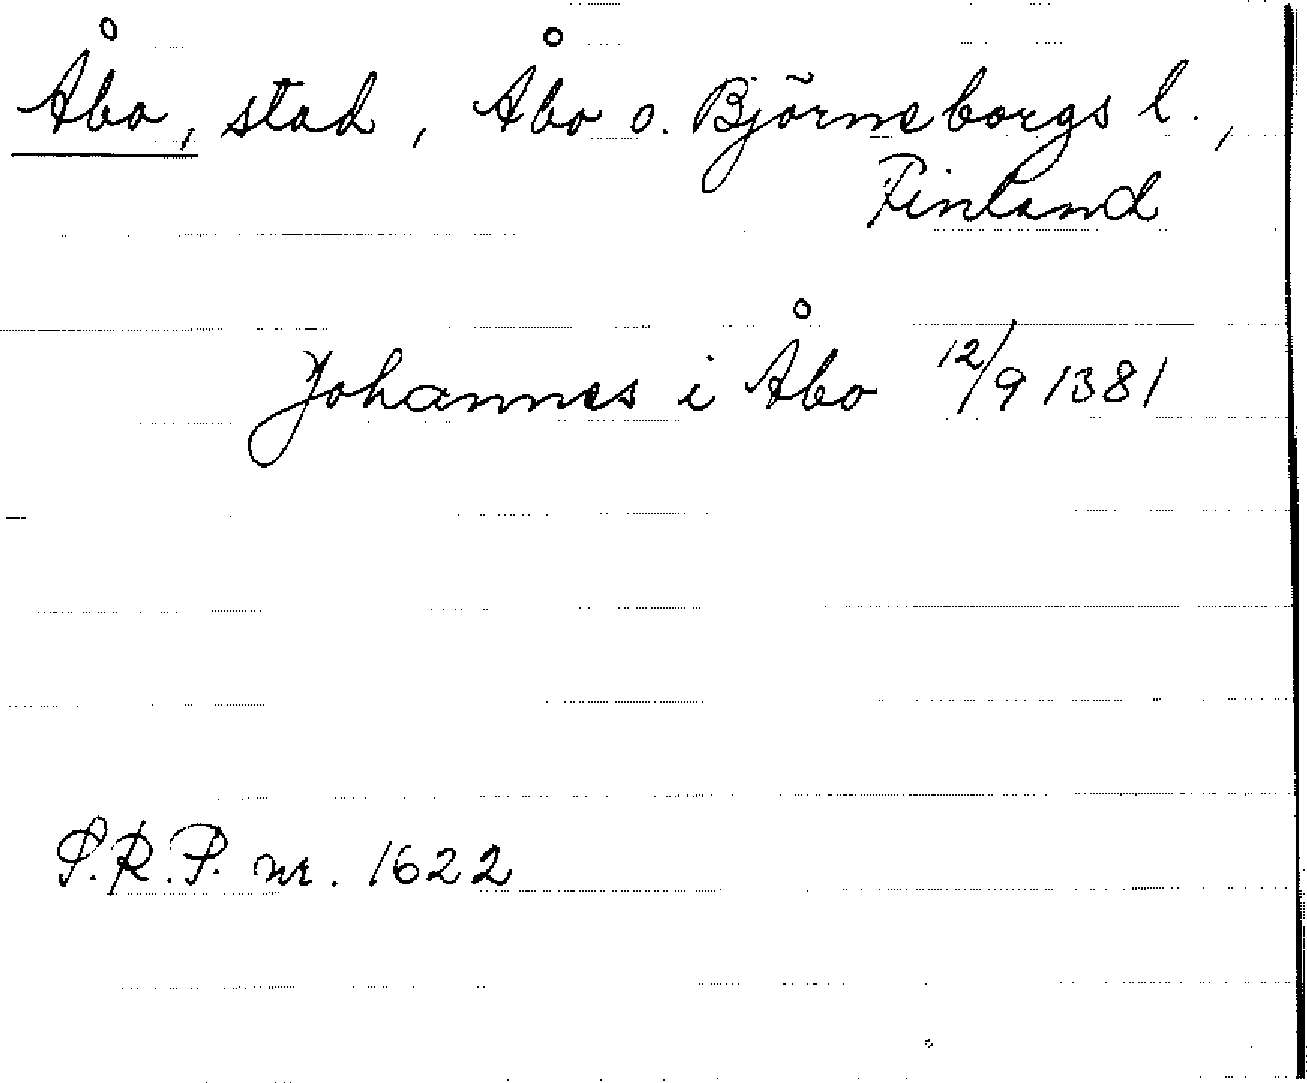 Åbo, stad, Åbo o. Björneborgs l.,
Finland
Johannes i Åbo 12/9 1381
S.R.P. nr. 1622